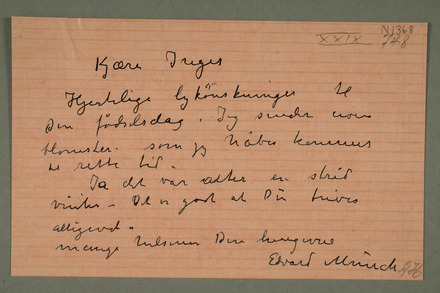 N 1368
XXIX 748
Kjære Inger
Hjertelige lykönskninger til
Din födselsdag. Jeg sender noen
blomster. som jeg håber kommer
til rette tid.
Ja det var atter en strid
vinter – Det er godt at Du trives
alligevel.
mange hilsener Din hengivne
Edvard Munch